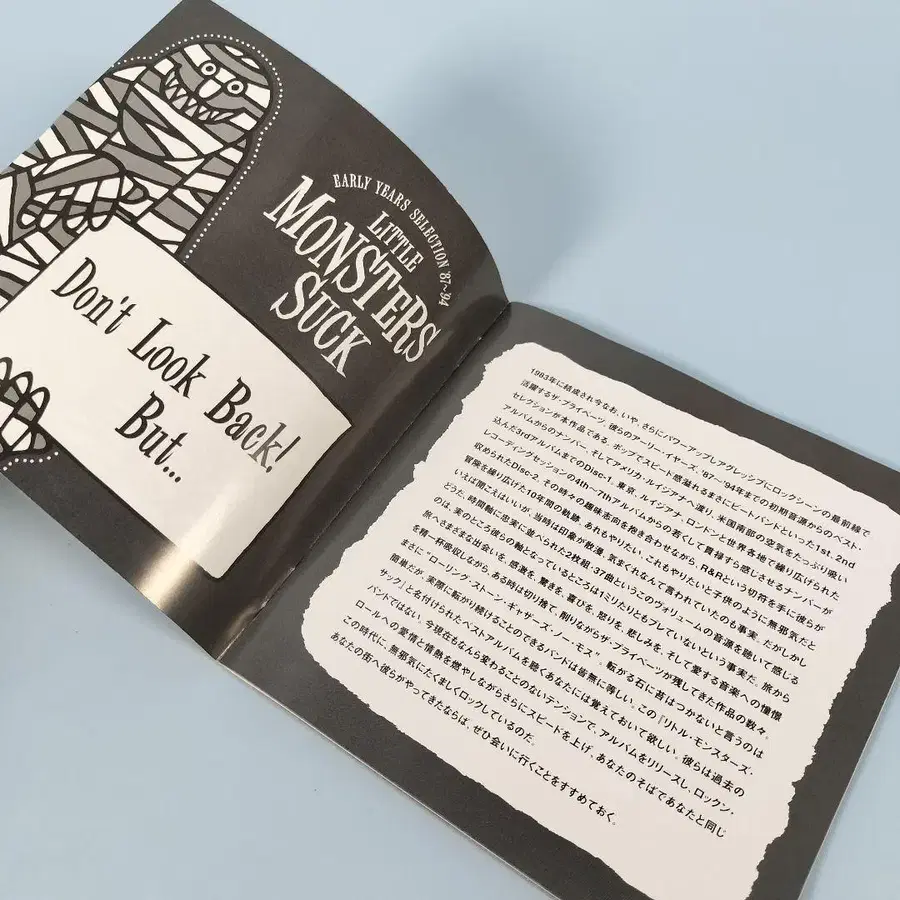 EARLY YEARS SELECTION '87~'94
LITTLE
MONSTERS
SUCK
Don't Look Back!
But...
1983年に結成され今なお、いや、さらにパワーアップしアグレッシブにロックシーンの最前線で
活躍するザ・プライベーツ。彼らのアーリー・イヤーズ、'87~'94年までの初期音源からのベスト・
セレクションが本作品である。ポップでスピード感溢れるまさにビートバンドといった1st、2nd
アルバムからのナンバー、そしてアメリカ・ルイジアナへ渡り、米国南部の空気をたっぷり吸い
込んだ3rdアルバムまでのDisc-1。東京、ルイジアナ、ロンドンと世界各地で繰り広げられた
レコーディングセッションの4th~7thアルバムからの若くして貫禄すら感じさせるナンバーが
収められたDisc-2。その時々の趣味志向を抱き合わせながら、R&Rという切符を手に彼らが
冒険を繰り広げた10年間の軌跡。あれもやりたい、これもやりたいと子供のように無邪気だと
いえば聞こえはいいが、当時は印象が散漫、気まぐれなんて言われていたのも事実。だがしかし
どうだ。時間軸に忠実に並べられた2枚組・37曲というこのヴォリュームの音源を聴いて感じる
のは、実のところ彼らの軸となっているところは1ミリたりともブレていないという事実だ。旅から
旅へさまざまな出会いを、感激を、驚きを、喜びを、怒りを、悲しみを、そして愛する音楽への憧憬
を精一杯吸収しながら、ある時は切り捨て、削りながらザ・プライベーツが残してきた作品の数々。
まさに“ローリング・ストーン・ギャザーズ・ノー・モス”。転がる石に苔はつかないと言うのは
簡単だが、実際に転がり続けることのできるバンドは皆無に等しい。この『リトル・モンスターズ・
サック』と名付けられたベストアルバムを聴くあなたには覚えておいて欲しい。彼らは過去の
バンドではない。今現在もなんら変わることのないテンションで、アルバムをリリースし、ロックン・
ロールへの愛情と情熱を燃やしながらさらにスピードを上げ、あなたのそばであなたと同じ
この時代に、無邪気にたくましくロックしているのだ。
あなたの街へ彼らがやってきたならば、ぜひ会いに行くことをすすめておく。